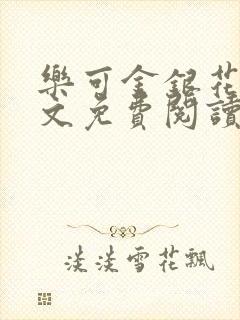 樂可金銀花
文免費閱讀
淡淡雪花飄